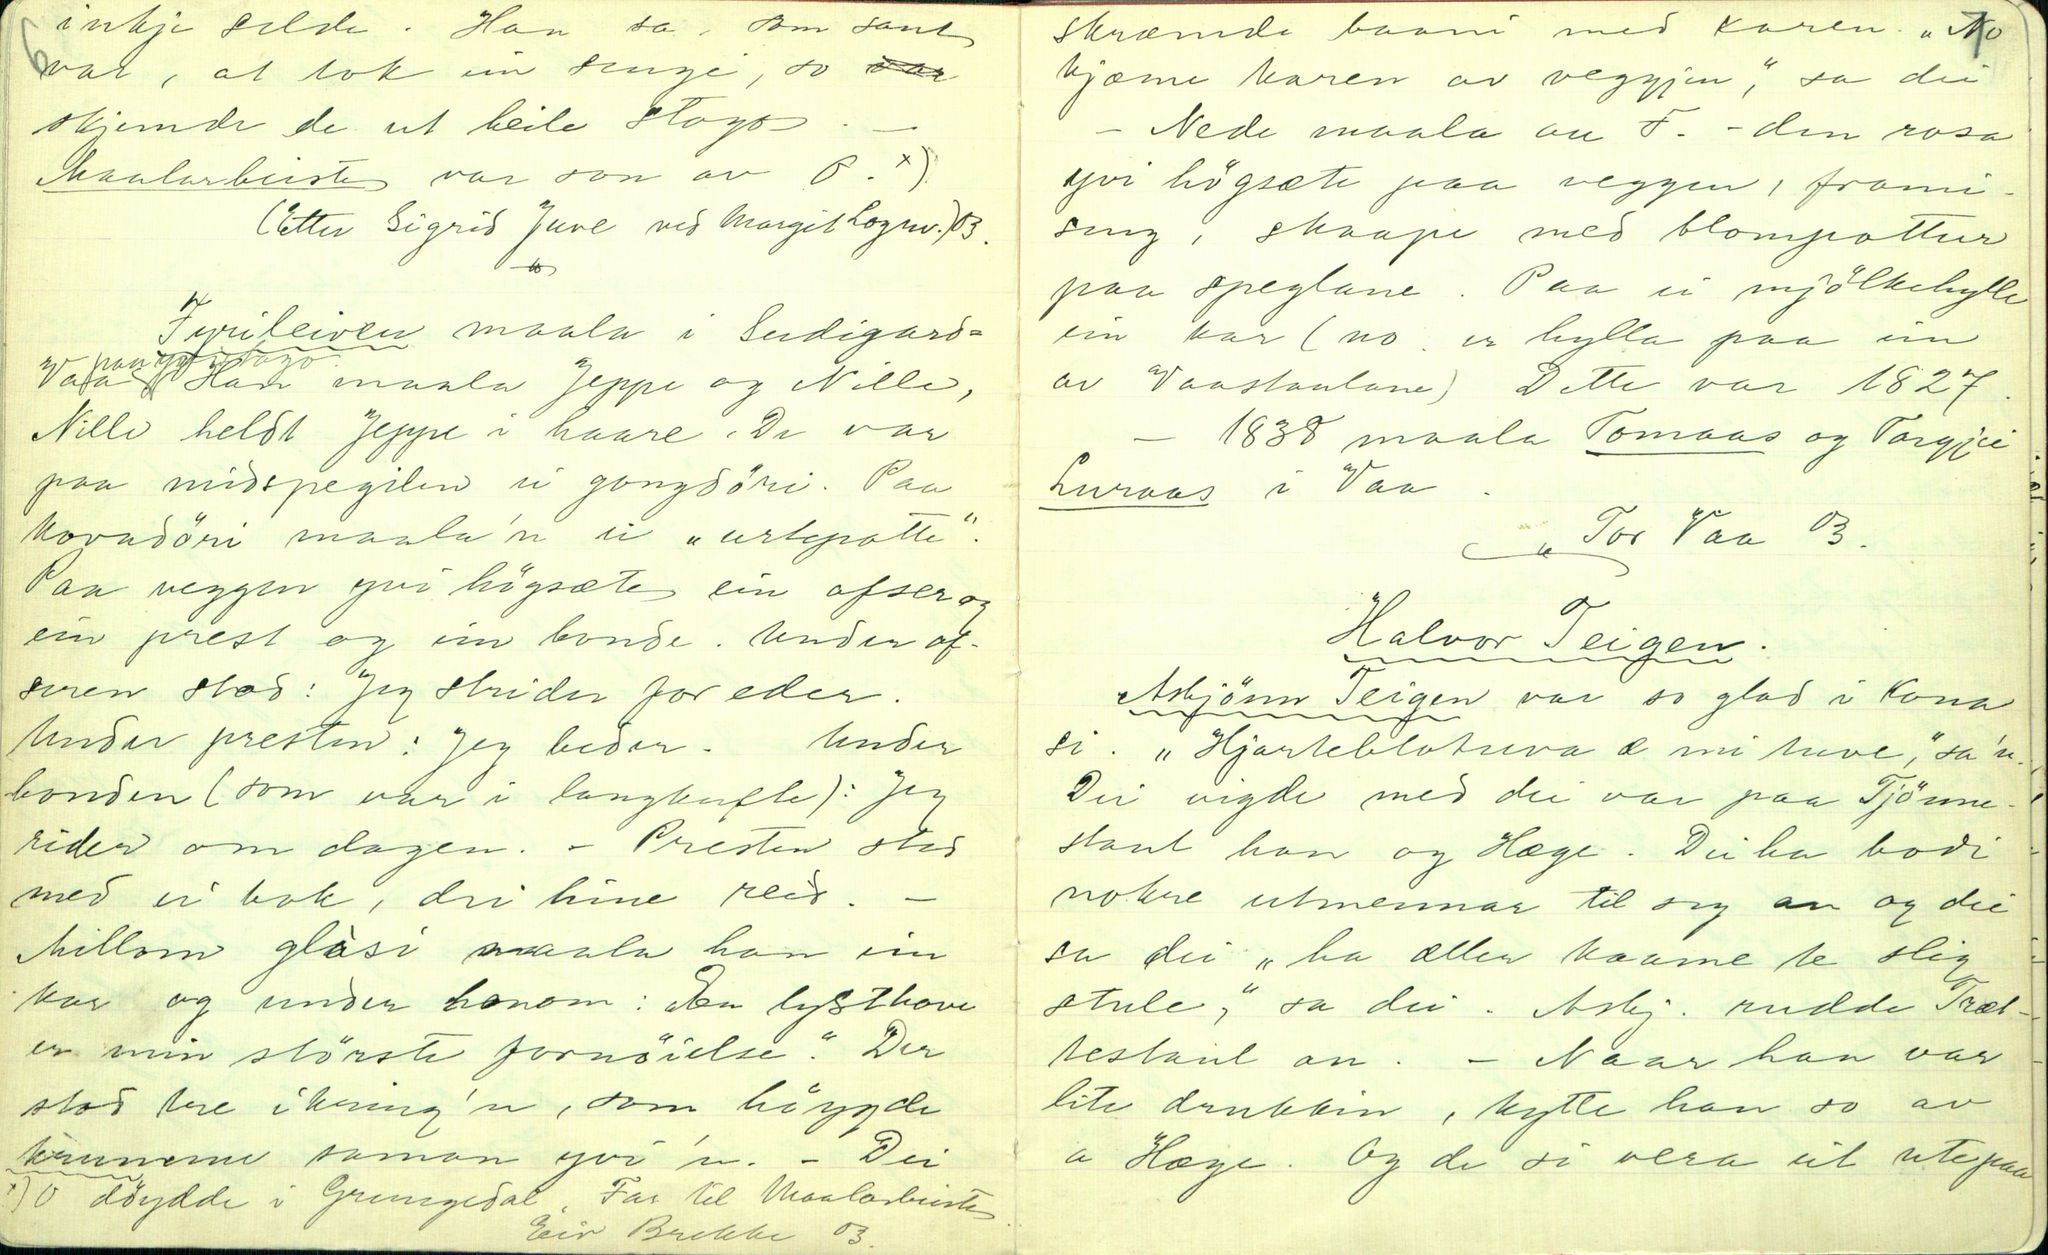 6
inkje selde. Han sa, som sant
var, at tok ein senge, so var
skjemde de ut heile stogo. —
Maalarbeisten var son av O. x)
(Etter Sigrid Juve ved Margit Logno.) 03.
Fyrileiven maala i Sudigard-
Vaa paa gamlestogo. Han maala Jeppe og Nille,
Nille heldt Jeppe i haare. De var
paa midspegilen ei gongdöri. Paa
kovadöri maala'n ei „urtepotte".
Paa veggen yvi högsæte ein ofser og
ein prest og ein bonde. Under of-
seren stod: Jeg strider for eder.
Under presten: Jeg beder. Under
bonden (som var i langkufte): Jeg
rider om dagen. – Presten stod
med ei bok, dei hine reid. –
Millom glasi maala han ein
kar og under honom: „En lysthave
er min störste fornöielse." Der
stod tre ikring'n, som böygde
krunerne saman yvi'n. – Dei
x) O döydde i Grungedal. Far til Maalarbeisten
Eiv Brekke 03.
7
skræmde baani med karen. „No
kjæme karen av veggjen," sa dei
– Nede maala au F. – den rosa
yvi högsæte paa veggen, frami-
seng, skaape med blompottur
paa speglane. Paa ei mjölkehylle
ein kar (no er hylla paa ein
av Vaastaulane) Dette var 1827.
– 1838 maala Tomaas og Targjei
Luraas i Vaa.
Tor Vaa 03.
Halvor Teigen.
Asbjönn Teigen var so glad i kona
si. „Hjarteblotruva æ mi truve," sa'n.
Dei vigde med dei var paa Tjönne-
staul han og Hæge. Dei ha bodi
nokre utmennar til seg an og dei
sa dei „ha ller kaame te slig
stule," sa dei. Asbj. rudde Træt-
testaul an. – Naar han var
lite drukkin, kytte han so av
a Hæge. Og de si vera eit ute paa